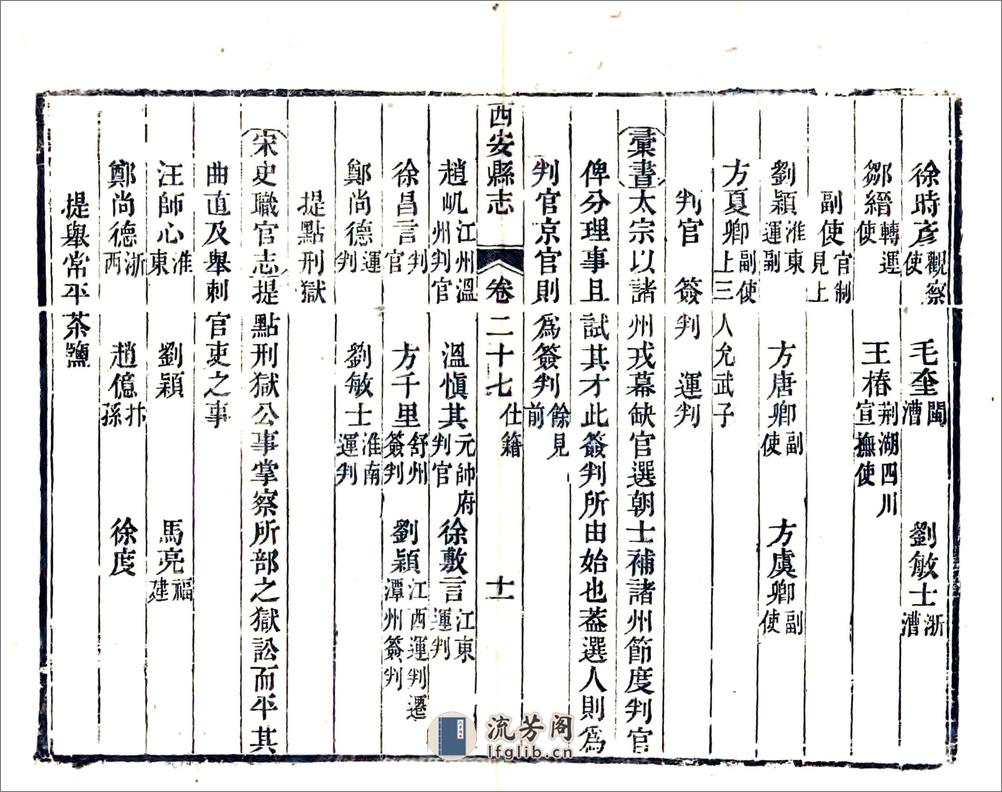 徐時彥觀察使　毛奎閩漕　劉敏士浙漕
鄒縉轉運使　王椿荆湖四川宣撫使
副使官制見上
劉穎淮東運副　方唐卿副使　方虞卿副使
方夏卿副使上三人允武子
判官　簽判　運判
彙書太宗以諸州戎幕缺官選朝士補諸州節度判官
俾分理事且試其才此簽判所由始也蓋選人則為
判官京官則為簽判餘見前
西安縣志　卷二十七　仕籍　十一
趙屼江州溫州判官　溫愼其元帥府判官　徐敷言江東運判
徐昌言判官　方千里舒州簽判　劉穎江西運判遷潭州簽判
鄭尚德運判　劉敏士淮南運判
提點刑獄
宋史職官志提點刑獄公事掌察所部之獄訟而平其
曲直及舉刺官吏之事
汪師心淮東　劉穎　馬亮福建
鄭尚德浙西　趙億抃孫　徐度
提舉常平茶鹽
流芳阁
lfglib.cn